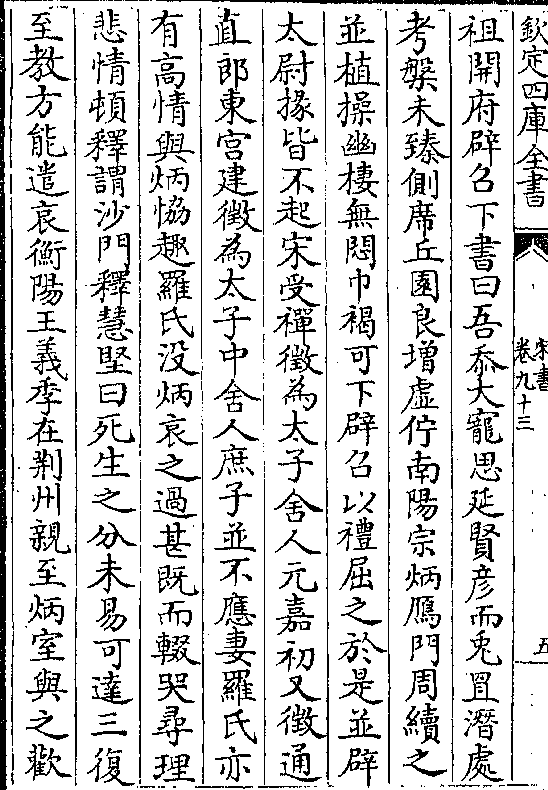 欽定四庫全書
宋書
卷九十三
五
祖開府辟召下書曰吾忝大寵思延賢彦而兎罝潛處
考槃未臻側席丘園良增虛佇南陽宗炳鴈門周續之
並植操幽棲無悶巾褐可下辟召以禮屈之於是並辟
太尉掾皆不起宋受禪徴為太子舍人元嘉初又徴通
直郎東宫建徴為太子中舍人庶子並不應妻羅氏亦
有高情與炳恊趣羅氏没炳哀之過甚既而輟哭尋理
悲情頓釋謂沙門釋慧堅曰死生之分未易可達三復
至教方能遣哀衡陽王義季在荆州親至炳室與之歡